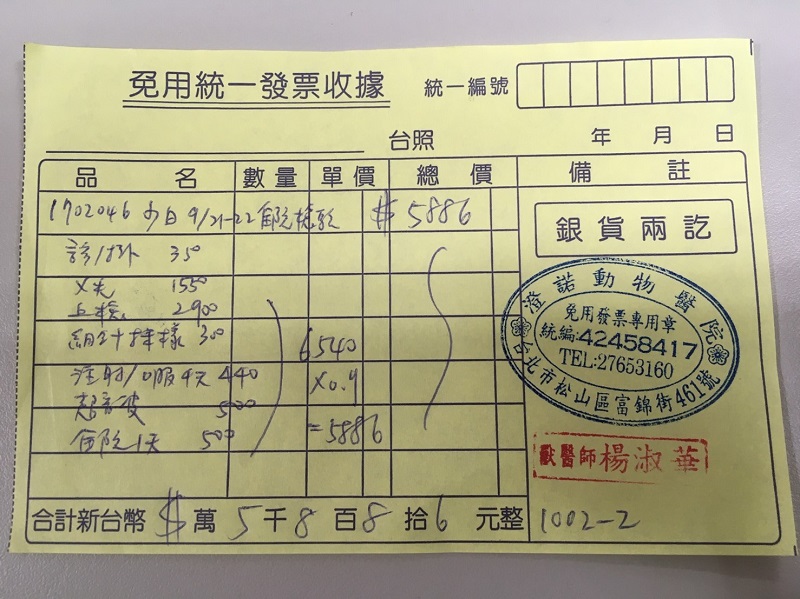 免用統一發票收據
統一編號
台照 年 月 日
品 名 數量 單價 總價 備註
1702046 少白 9/21-22 留院檢驗 $ 5886
銀貨兩訖
診/掛 350
X光 1550
血檢 2900
細針採樣 300
6540
注射/口服4天 440
x0.9
超音波 500
住院1天 500
=5886
澄諾動物醫院
免用發票專用章
統編:42458417
TEL:27653160
台北市松山區富錦街461號
獸醫師楊淑華
合計新台幣 $ 萬 5 千 8 百 8 拾 6 元整
1002-2